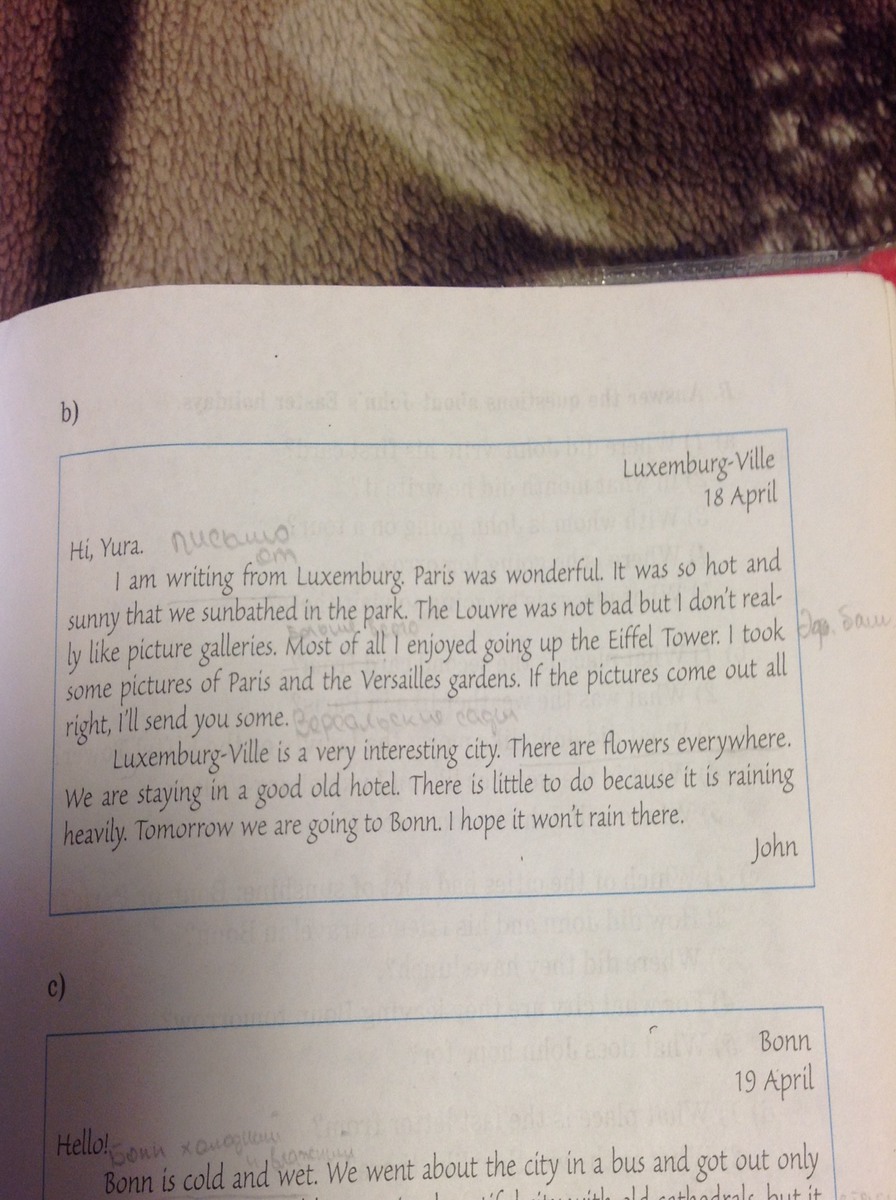 b)
Luxemburg-Ville
18 April
Hi, Yura. письмо
от
I am writing from Luxemburg. Paris was wonderful. It was so hot and
sunny that we sunbathed in the park. The Louvre was not bad but I don't real-
ly like picture galleries. Most of all I enjoyed going up the Eiffel Tower. I took
some pictures of Paris and the Versailles gardens. If the pictures come out all
right, I'll send you some. Версальские сады
Luxemburg-Ville is a very interesting city. There are flowers everywhere.
We are staying in a good old hotel. There is little to do because it is raining
heavily. Tomorrow we are going to Bonn. I hope it won't rain there.
John
c)
Bonn
19 April
Hello! Бонн
Bonn is cold and wet. We went about the city in a bus and got out only
with old cathedrals but it